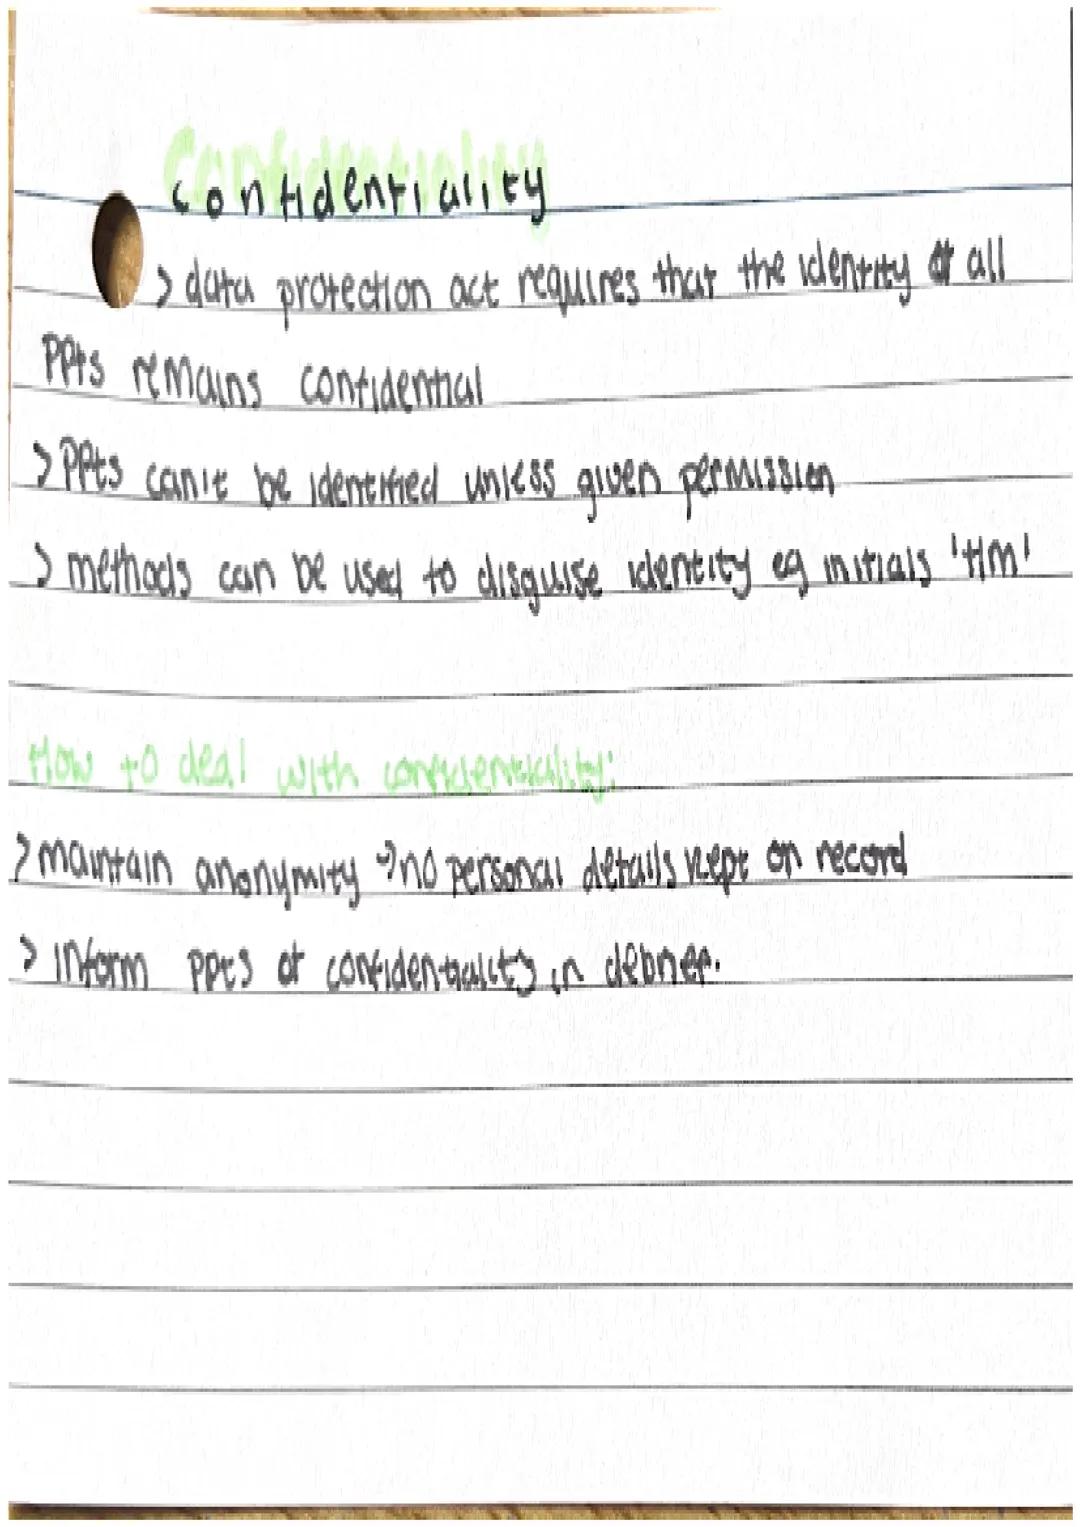 Confidentiality
> data protection act requires that the identity of all
PPts remains confidential
> PPts can't be identified unless given permission
> methods can be used to disguise identity eg initials 'HM'
How to deal with confidentiality:
> maintain anonymity → no personal details kept on record
> inform ppts of confidentiality in debrief.